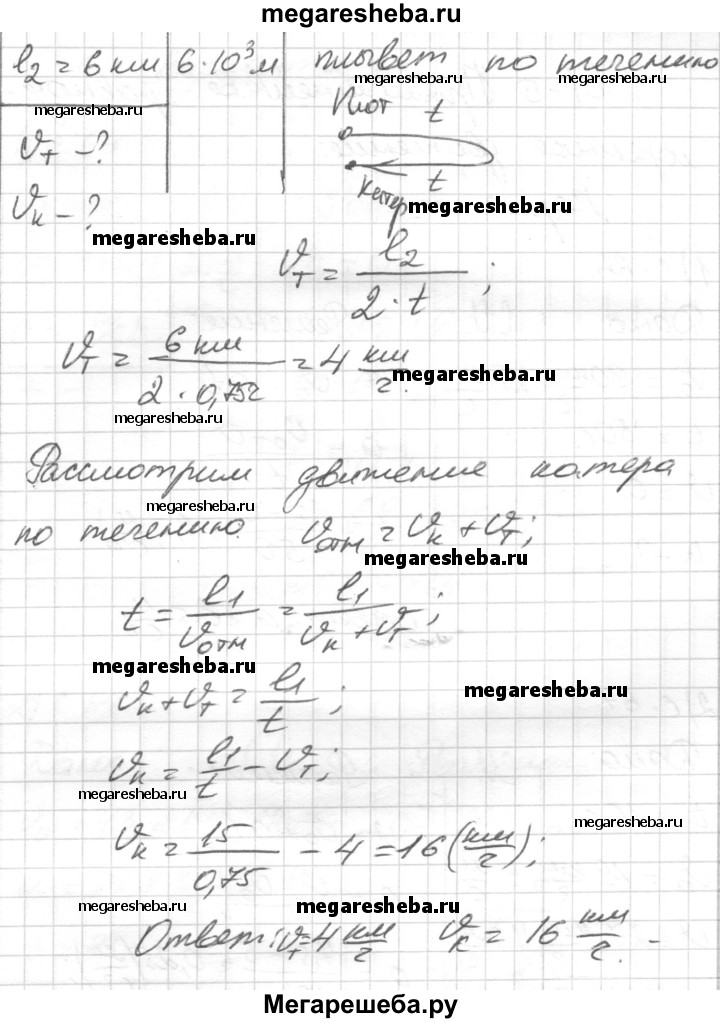 megaresheba.ru
l₂ = 6 км 6·10³ м плывет по течению
megaresheba.ru megaresheba.ru
megaresheba.ru Плот t
vт - ?
t
Катер
vк - ? megaresheba.ru
megaresheba.ru
vт = l₂ / (2 · t) ;
vт = 6 км / (2 · 0,75 ч) = 4 км/ч.
megaresheba.ru
megaresheba.ru
Рассмотрим движение катера
megaresheba.ru
по течению vотн = vк + vт;
megaresheba.ru
t = l₁ / vотн = l₁ / (vк + vт) ;
megaresheba.ru
vк + vт = l₁ / t ;
megaresheba.ru
vк = l₁ / t - vт;
megaresheba.ru
megaresheba.ru
vк = 15 / 0,75 - 4 = 16 (км/ч);
megaresheba.ru megaresheba.ru
Ответ: vт = 4 км/ч vк = 16 км/ч.
Мегарешеба.ру